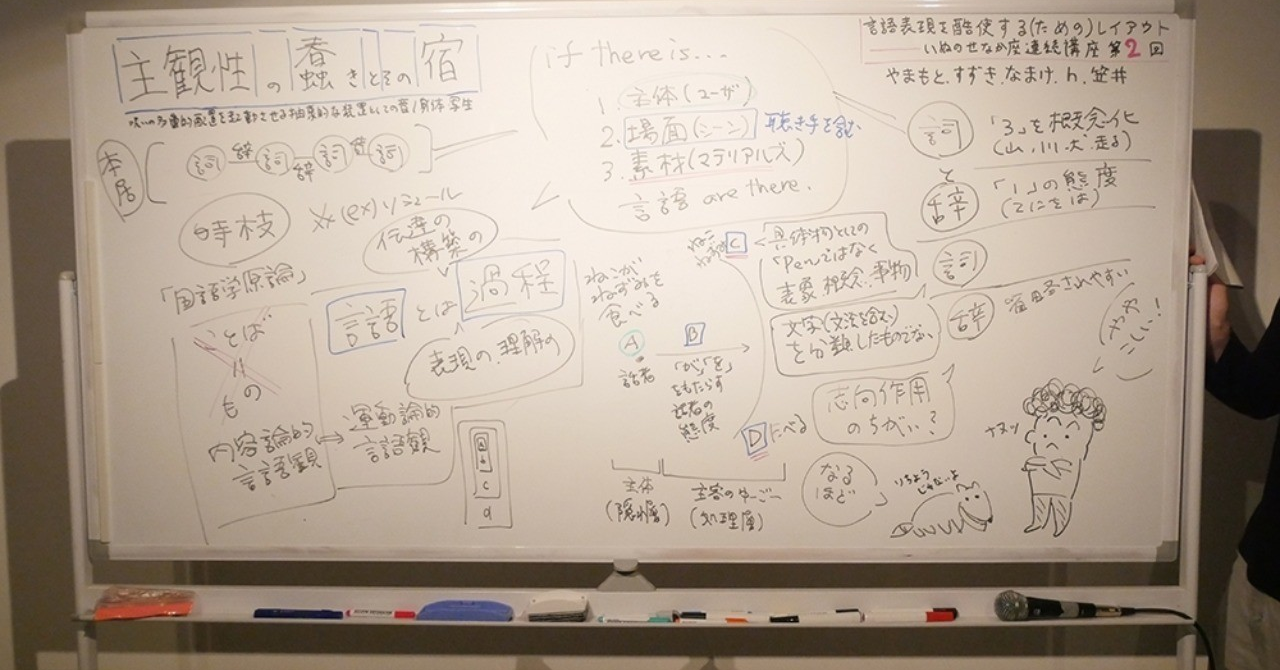 主観性の蠢きとその宿
言語表現を酷使する(ための)レイアウト
いぬのせなか座連続講座第2回
やまもと、すずき、なまけ、h、笠井
本居
詞 辞 詞 辞 詞 詞
時枝
(ex)ソシュール
伝達の
構築の
「国語学原論」
言語とは過程
表現の、理解の
ことば
〃
もの
内容論的
言語観
運動論的
言語観
if there is...
1 主体(ユーザ)
2. 場面(シーン) 聴き手を含む
3. 素材(マテリアルズ)
言語 are there.
詞 「3」を概念化
(山、川、犬、走る)
と
辞 「1」の態度
(てにをは)
詞
辞
ややこしい!
ねこが
ねずみを
食べる
A
話者
B
「が」「を」
をもたらす
話者の
態度
C
具体物としての
「Pen」ではなく
表象、概念、事物
文字(文法を含む)
を分類したものでない
志向作用
のちがい?
D たべる
主体
(隠れ層)
(処理層)
A
C
d
なる
ほど
ナヌッ